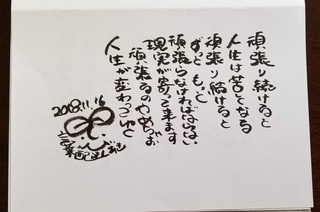 頑張り続けると
人生は苦となる
頑張り続けると
ずっともっと
頑張らなければならない
現実が寄って来ます
頑張るのやめちゃお
人生が変わっていくと
2008.11.16